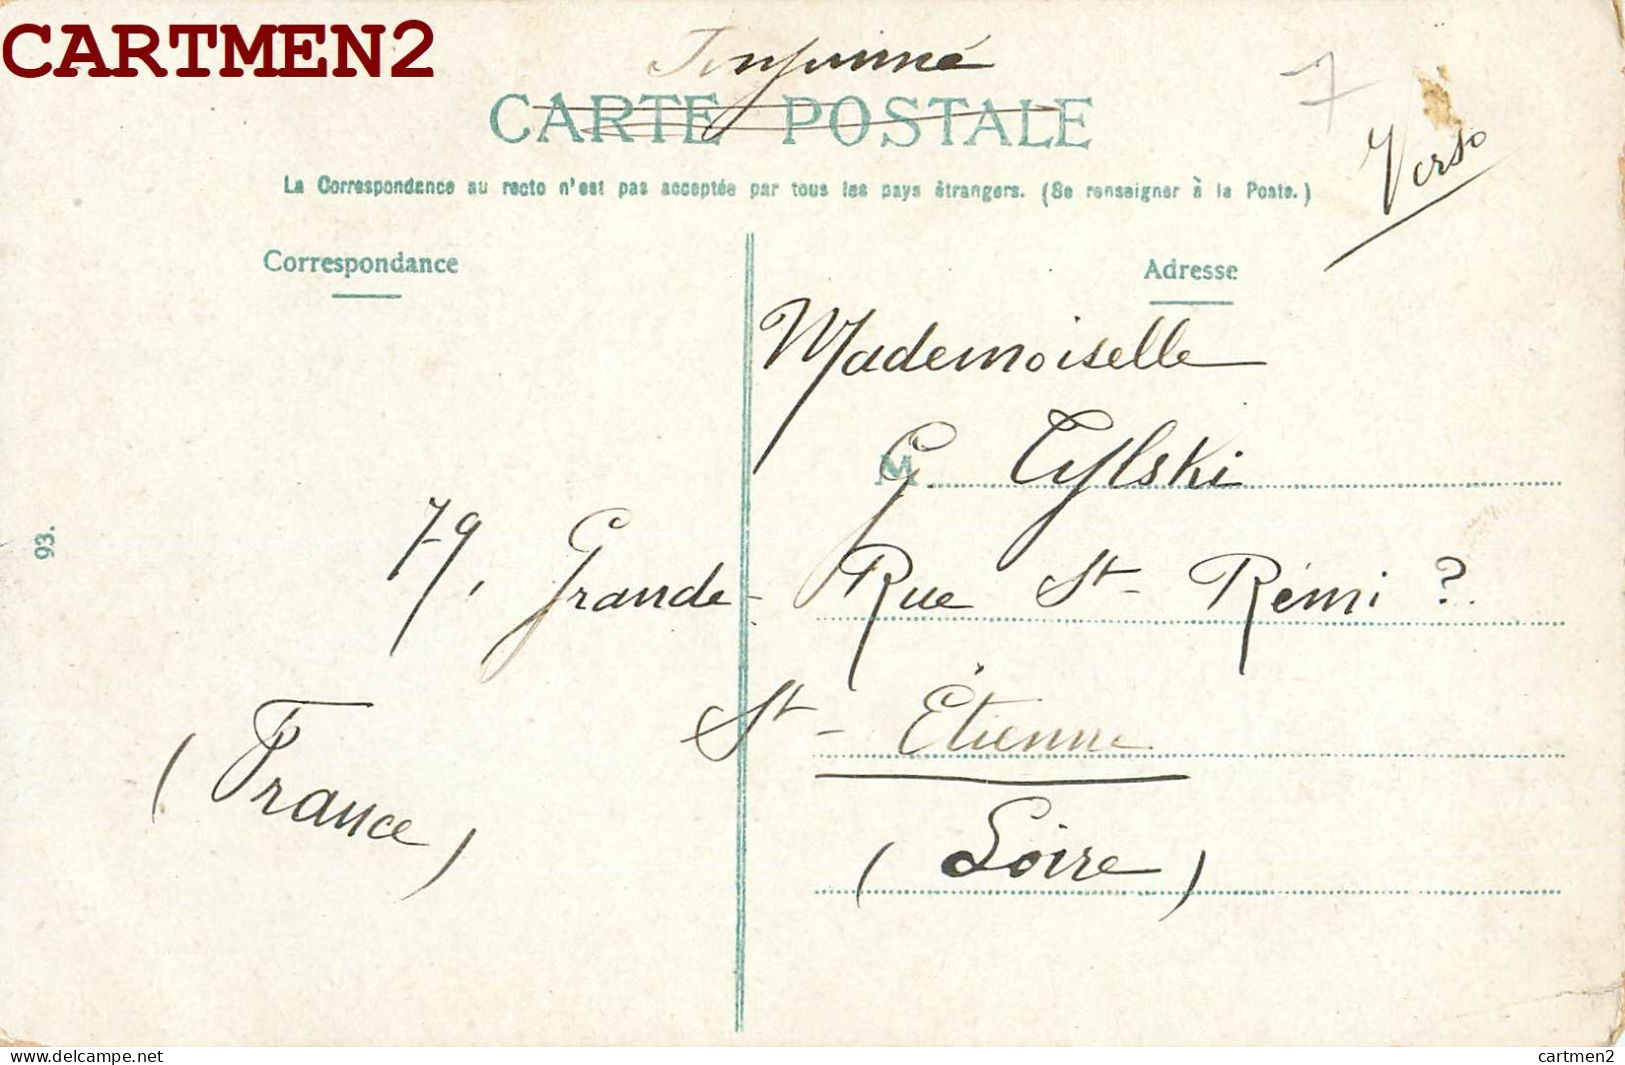 CARTMEN2
Imprimé
7
CARTE POSTALE
Verso
La Correspondance au recto n'est pas acceptée par tous les pays étrangers. (Se renseigner à la Poste.)
Correspondance
Adresse
Mademoiselle
M G. Cylski
79, Grande- Rue St- Rémi ?
St- Étienne
(Loire)
(France)
93.
delcampe.net
cartmen2